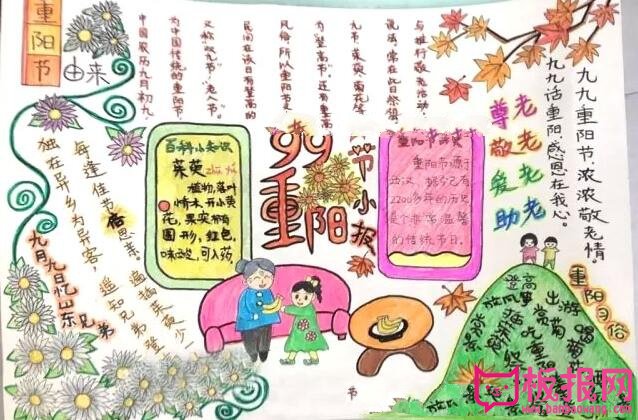 重阳节
由来
中国农历九月初九,
为中国传统的重阳节,
又称“双九节”,“老人节”。
民间在该日有登高的
风俗,所以重阳节又
为“登高节”。还有重高
九节,茱萸,菊花等
说法,常在此日祭祖
与推行敬老活动。
九月九日忆山东兄弟
独在异乡为异客,
每逢佳节倍思亲。
遥知兄弟登
遍插茱萸少一
百科小知识
茱萸 zhū yú
植物,落叶
开小黄
花,果实椭
圆形,红色,
味酸,可入药
老
99重阳
节小报
重阳节
重阳节源于
西汉,据今已有
2200多年的历史
是个非常温馨
的传统节日。
尊老
敬老
爱老
助老
九九重阳节,浓浓敬老情。
九九话重阳,感恩在我心。
重阳习俗
登高
出游
赏菊
放风筝
吃重阳
节
板报网